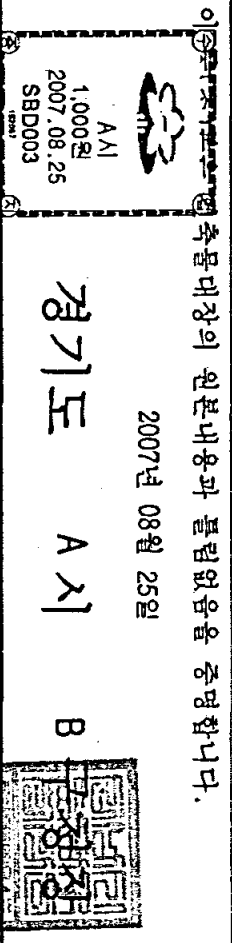 이 축물대장의 원본내용과 틀림없음을 증명합니다.
2007년 08월 25일
경기도 A시 B
A시
1,000원
2007.08.25
SBD003